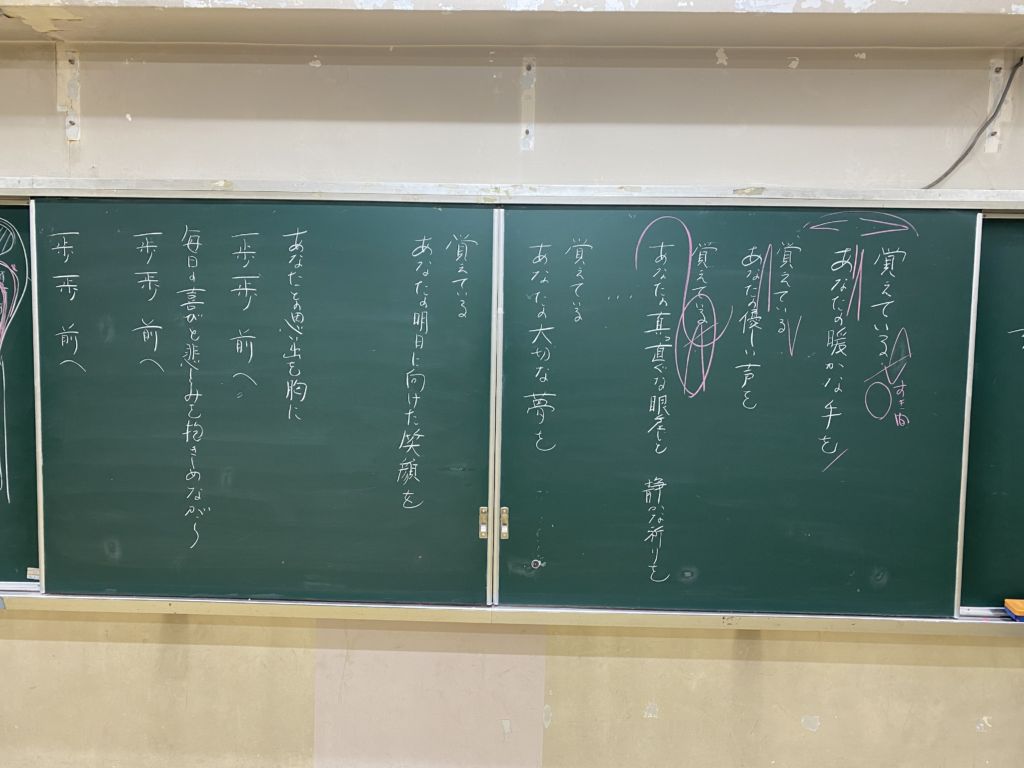 覚えている
あなたの暖かな手を
すき間
覚えている
あなたの優しい声を
覚えている
あなたの真っ直ぐな眼差しと 静かな祈りを
覚えている
あなたの大切な夢を
覚えている
あなたの明日に向けた笑顔を
あなたとの思い出を胸に
一歩一歩 前へ
毎日の喜びと悲しみを抱きしめながら
一歩 前へ
一歩一歩 前へ